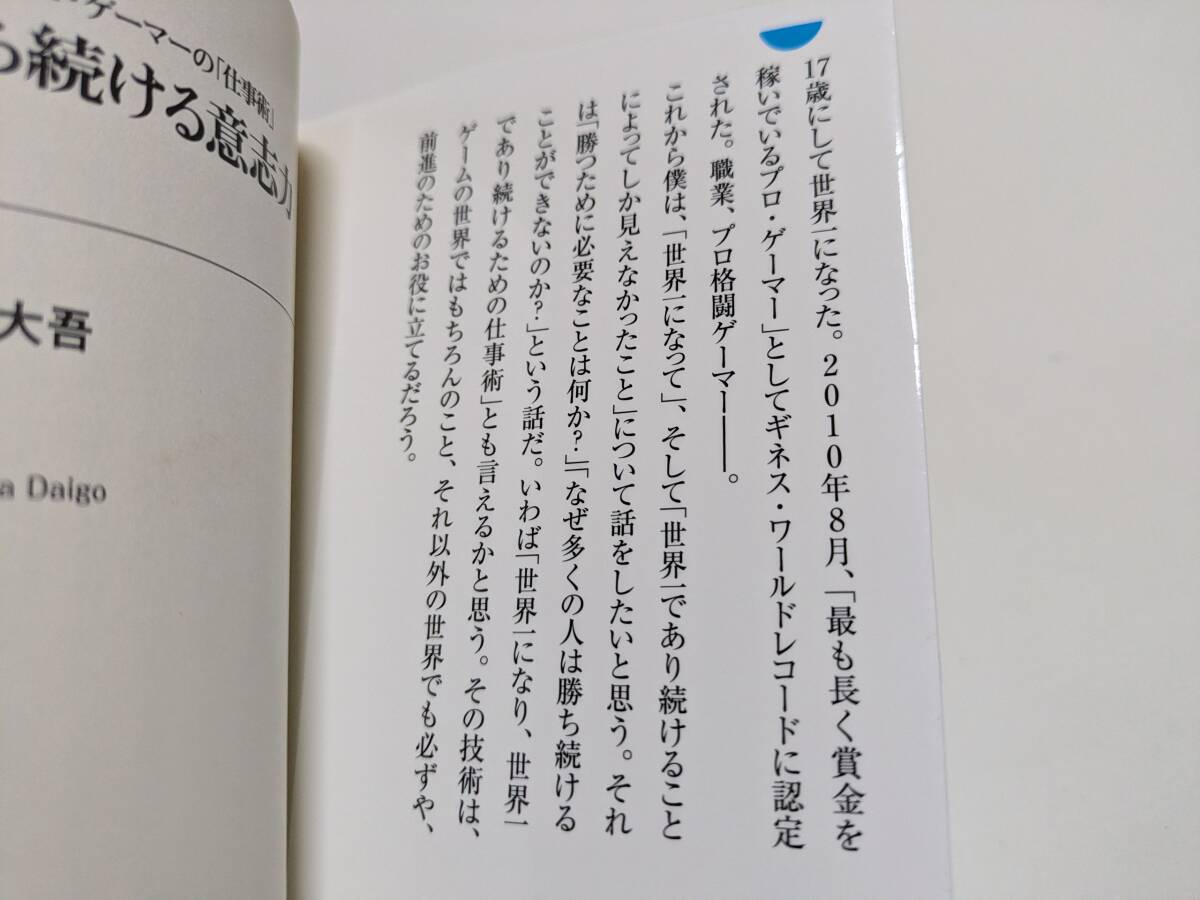 17歳にして世界一になった。2010年8月、「最も長く賞金を
稼いでいるプロ・ゲーマー」としてギネス・ワールドレコードに認定
された。職業、プロ格闘ゲーマー――。
これから僕は、「世界一になって」、そして「世界一であり続けること
によってしか見えなかったこと」について話をしたいと思う。それ
は「勝つために必要なことは何か?」「なぜ多くの人は勝ち続ける
ことができないのか?」という話だ。いわば「世界一になり、世界一
であり続けるための仕事術」とも言えるかと思う。その技術は、
ゲームの世界ではもちろんのこと、それ以外の世界でも必ずや、
前進のためのお役に立てるだろう。
・ゲーマーの「仕事術」
続ける意志力
大吾
a Daigo